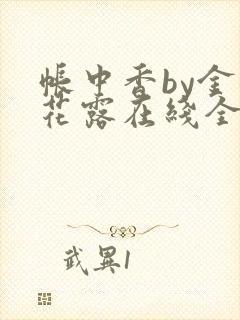 帐中香by金
花露在线全
武异1